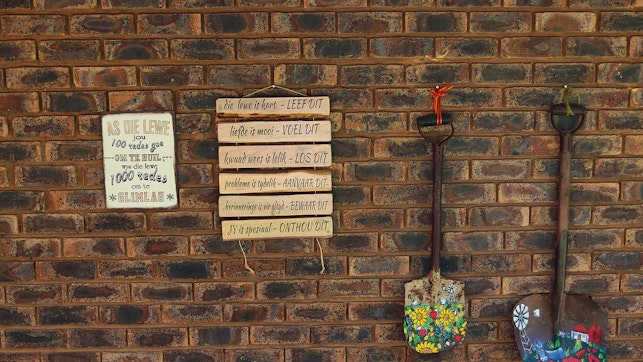 AS DIE LEWE
jou
100 redes gee
-OM TE HUIL,-
wys die lewe
1000 redes
om te
GLIMLAG
die lewe is kort - LEEF DIT
liefde is mooi - VOEL DIT
kwaad wees is lelik - LOS DIT
probleme is tydelik - AANVAAR DIT
herinneringe is vir altyd - BEWAAR DIT
JY is spesiaal - ONTHOU DIT